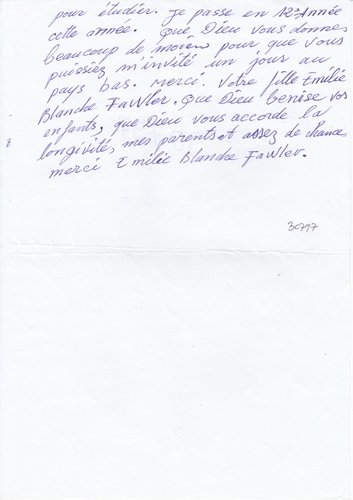 pour étudier. Je passe en 12e Année
cette année. Que Dieu vous donnes
beaucoup de moien pour que vous
puissiez m'invité un jour au
pays bas. Merci. Votre fille Emilie
Blanche Fawler. Que Dieu benise vos
enfants, que Dieu vous accorde la
longivités, mes parents et assez de chance
merci Emilie Blanche Fawler.
30797